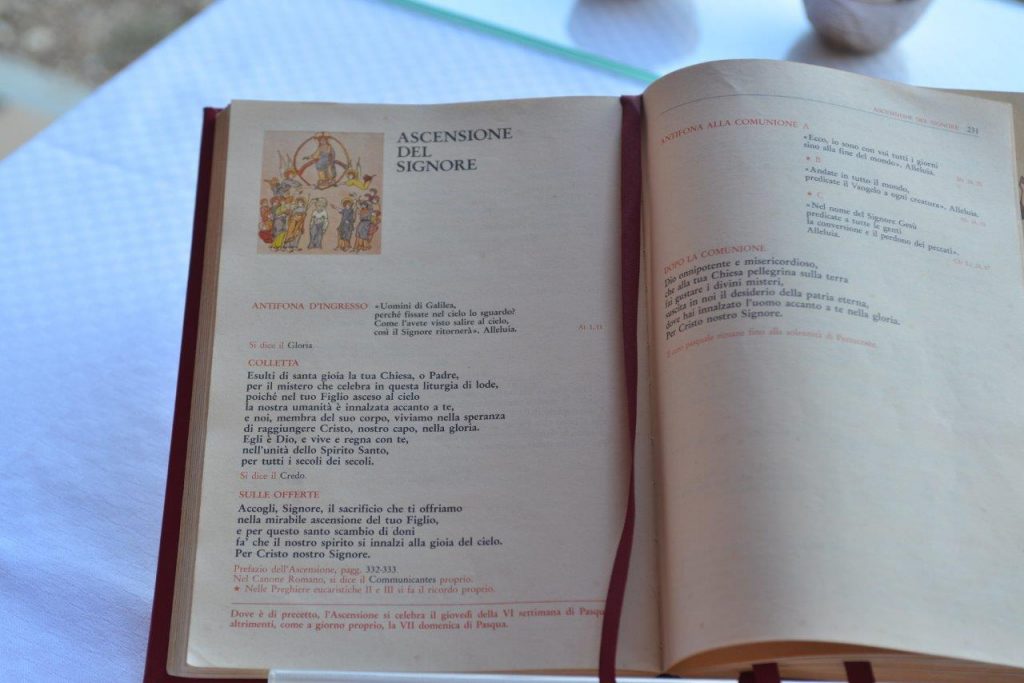 ASCENSIONE
DEL
SIGNORE
ANTIFONA D'INGRESSO «Uomini di Galilea,
perché fissate nel cielo lo sguardo?
Come l'avete visto salire al cielo,
così il Signore ritornerà». Alleluia. At 1, 11
Si dice il Gloria.
COLLETTA
Esulti di santa gioia la tua Chiesa, o Padre,
per il mistero che celebra in questa liturgia di lode,
poiché nel tuo Figlio asceso al cielo
la nostra umanità è innalzata accanto a te,
e noi, membra del suo corpo, viviamo nella speranza
di raggiungere Cristo, nostro capo, nella gloria.
Egli è Dio, e vive e regna con te,
nell'unità dello Spirito Santo,
per tutti i secoli dei secoli.
Si dice il Credo.
SULLE OFFERTE
Accogli, Signore, il sacrificio che ti offriamo
nella mirabile ascensione del tuo Figlio,
e per questo santo scambio di doni
fa' che il nostro spirito si innalzi alla gioia del cielo.
Per Cristo nostro Signore.
Prefazio dell'Ascensione, pagg. 332-333.
Nel Canone Romano, si dice il Communicantes proprio.
★ Nelle Preghiere eucaristiche II e III si fa il ricordo proprio.
Dove è di precetto, l'Ascensione si celebra il giovedì della VI settimana di Pasqu
altrimenti, come a giorno proprio, la VII domenica di Pasqua.
ASCENSIONE DEL SIGNORE 251
ANTIFONA ALLA COMUNIONE A
«Ecco, io sono con voi tutti i giorni
sino alla fine del mondo». Alleluia.
★ B
«Andate in tutto il mondo,
predicate il Vangelo a ogni creatura». Alleluia.
★ C
«Nel nome del Signore Gesù
predicate a tutte le genti
la conversione e il perdono dei peccati».
Alleluia.
DOPO LA COMUNIONE
Dio onnipotente e misericordioso,
che alla tua Chiesa pellegrina sulla terra
fai gustare i divini misteri,
suscita in noi il desiderio della patria eterna,
dove hai innalzato l'uomo accanto a te nella gloria.
Per Cristo nostro Signore.
Il cero pasquale rimane fino alla solennità di Pentecoste.